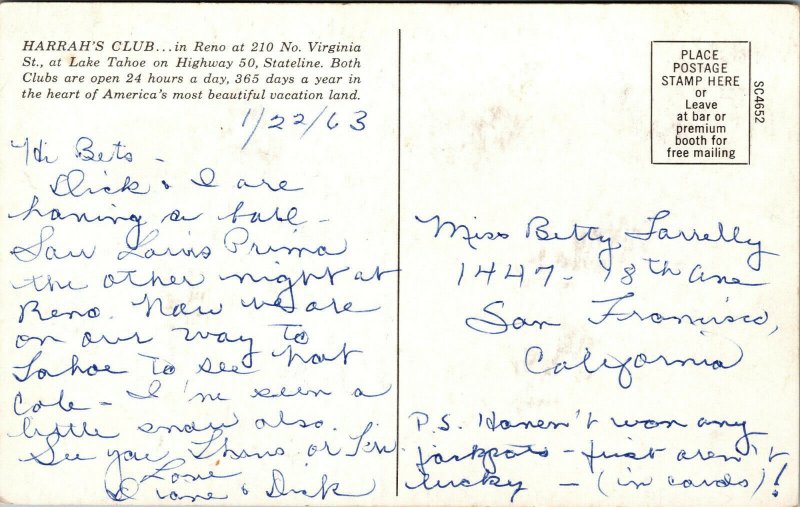 HARRAH'S CLUB...in Reno at 210 No. Virginia
St., at Lake Tahoe on Highway 50, Stateline. Both
Clubs are open 24 hours a day, 365 days a year in
the heart of America's most beautiful vacation land.
1/22/63
Hi Bets -
Dick & I are
having a ball -
Saw Louis Prima
the other night at
Reno. Now we are
on our way to
Tahoe to see Nat
Cole - I've seen a
little snow also.
See you Thurs or Fri.
Love
Diane & Dick
PLACE
POSTAGE
STAMP HERE
or
Leave
at bar or
premium
booth for
free mailing
SC4652
Miss Betty Farrelly
1447 - 18th Ave
San Francisco,
California
P.S. Haven't won any
jackpots - just aren't
lucky - (in cards)!